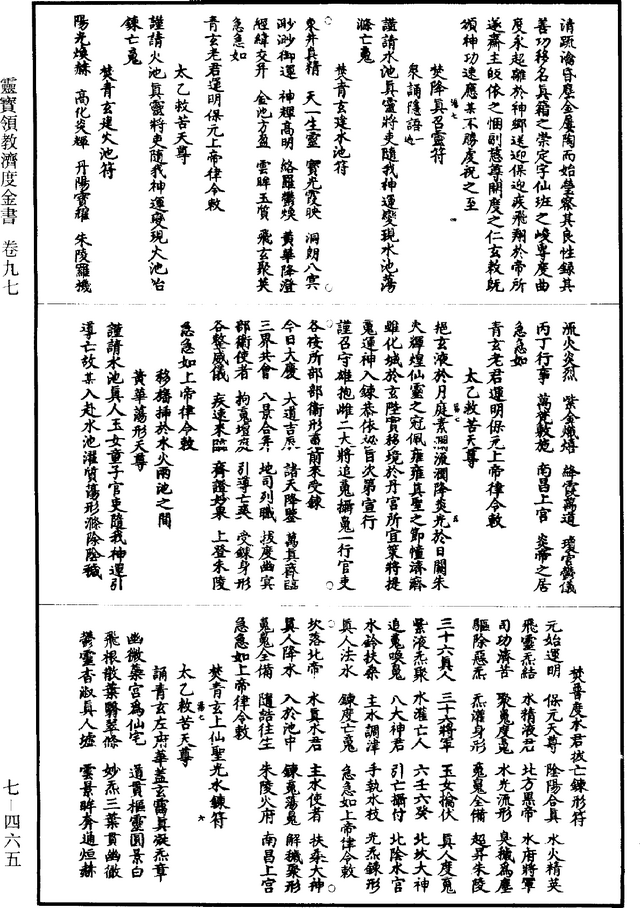 清疏瀹昏塵金屢陶而始瑩察其良性錄其
善功移名真籍之崇定字仙班之峻專度曲
度永超離於神鄉送迎保迎疾飛翔於帝所
遂齋主皈依之悃副慈尊開度之仁玄教既
頒神功速應某不勝度祝之至
焚降真召靈符
衆誦隱語一
焚青玄建水池符
謹請水池真靈將吏隨我神運變現水池蕩
滌亡魂
東井真精 天一生靈 寶光霞映 洞朗八冥
渺渺御運 神輝高明 絡羅鬱煥 黃華降澄
經緯交升 金池方盈 雲眸玉質 飛玄聚英
急急如
青玄老君運明保元上帝律令敕
太乙救苦天尊
謹請火池真靈將吏隨我神運變現火池冶
鍊亡魂
焚青玄建火池符
陽光煥赫 高化炎輝 丹陽寶耀 朱陵羅機
流火炎烈 紫金熾煒 絳霞萬道 瓊宮鬱儀
丙丁行事 萬炁敷施 南昌上宮 炎帝之居
急急如
青玄老君運明保元上帝律令敕
太乙救苦天尊
挹玄液於月庭素
夫輝煌仙靈之冠佩雍雍真聖之節幢濟濟
雖化城於玄陛實移境於丹宮所宜策將提
魂運神入鍊恭依祕旨次第宣行
謹召守雄抱雌二大將追魂攝魂一行官吏
各按所部部衛形畜前來受鍊
今日大慶 大道吉辰 諸天降鑒 萬真齊臨
三界共會 八景合并 地司列職 拔度幽冥
部衛使者 拘魂增度 引導亡爽 受鍊身形
各整威儀 疾速來臨 齊證妙果 上登朱陵
急急如上帝律令敕
移旛插於水火兩池之間
黃華蕩形天尊
謹請水池真人玉女童子官吏隨我神運引
導亡故某入赴水池濯質蕩形滌除陰穢
焚普度水君拔亡鍊形符
元始運明 保元天尊 陰陽合真 水火精英
飛靈炁結 水精液君 北方黑帝 水府將軍
司功濟苦 聚魂度魂 水光流形 臭穢爲塵
驅除惡炁 炁濯身形 魂魂全備 超昇朱陵
三十六真人 三十六將軍 玉女掄伏 真人度魂
紫液炁聚 水濯亡人 六壬六癸 北坎大神
追魂喚魂 八大神君 引亡攝付 北陰水官
水鈴扶桑 主水調津 手執水枝 光炁鍊形
真人法水 鍊度亡魂 急急如上帝律令敕
坎落北帝 水真水君 主水使者 扶桑大神
真人降水 入於池中 鍊魂蕩魂 解穢聚形
魂魂全備 隨詰往生 朱陵火府 南昌上宮
急急如上帝律令敕
焚青玄上仙聖光水鍊符
太乙救苦天尊
誦青玄左府華蓋玄靄真凝炁章
幽微藥宮爲仙宅 道貫樞靈圓景白
飛根散葉翳翠條 妙炁三葉貫幽微
鬱靈杳淑真人墟 雲景眸奔通烜赫
靈寶領教濟度金書 卷九七
七－四六五